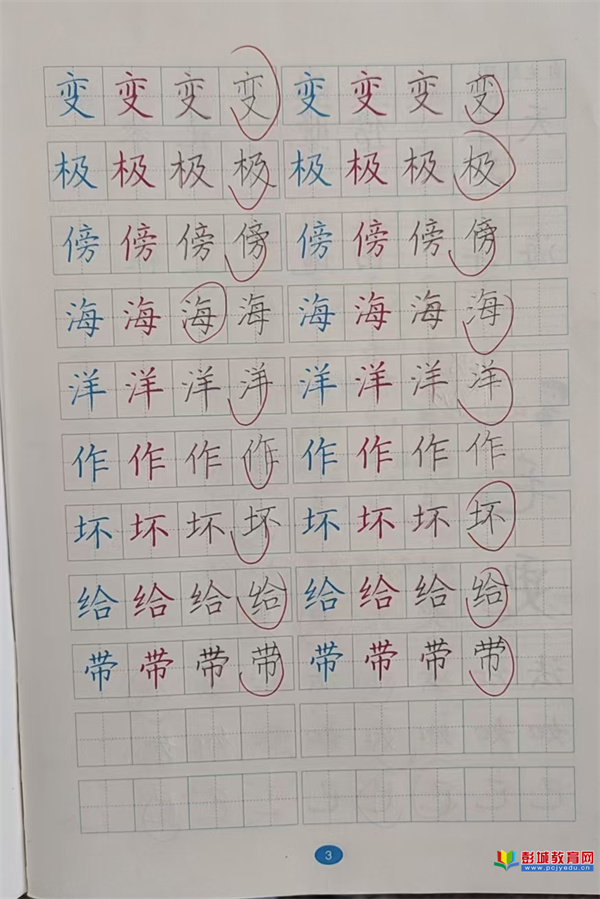 变变变变变变变变
极极极极极极极极
傍傍傍傍傍傍傍傍
海海海海海海海海
洋洋洋洋洋洋洋洋
作作作作作作作作
坏坏坏坏坏坏坏坏
给给给给给给给给
带带带带带带带带
3
彭城教育网
www.pcjyedu.cn